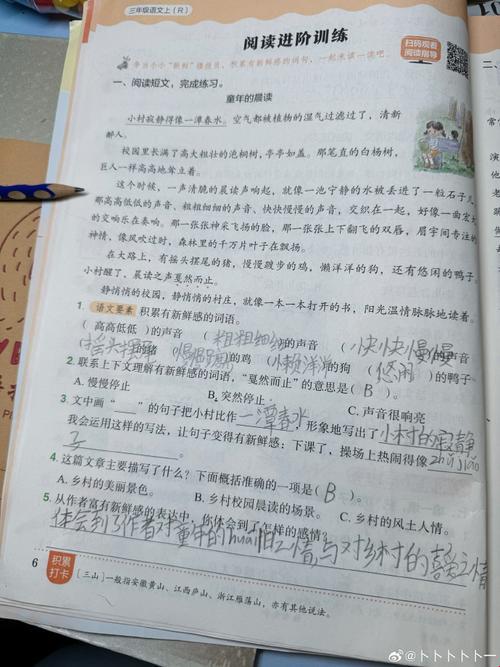 三年级语文上（R）
阅读进阶训练
扫码观看
阅读指导
争当小小“新鲜”播报员，积累有新鲜感的词句，一起来读一读吧。
一、阅读短文，完成练习。
童年的晨读
小村寂静得像一潭春水。空气都被植物的湿气过滤过了，清新
醉人。
校园里长满了高大粗壮的泡桐树，亭亭如盖。那笔直的白杨树，
巨人一样高高地耸立着。
这个时候，一声清脆的晨读声响起，就像一池宁静的水被丢进了一粒石子儿，
那高高低低的声音、粗粗细细的声音、快快慢慢的声音，交织在一起，好像一曲宏大
的交响乐在奏响。那一张张神采飞扬的脸，那一张张上下翻飞的双唇，眉宇间专注的
神情，像风吹过时，森林里的千万片叶子在飘扬。
在大路上，有摇头摆尾的猪，慢慢踱步的鸡，懒洋洋的狗，还有悠闲的鸭子。
小村醒了，晨读之声戛然而止。
静悄悄的校园，静悄悄的村庄，就像一本一本打开的书，阳光温情脉脉地读着。
1. 语文要素 积累有新鲜感的词语。
（高高低低）的声音 （粗粗细细）的声音 （快快慢慢）的声音
（摇头摆尾）的猪 （慢慢踱步）的鸡 （懒洋洋）的狗 （悠闲）的鸭子
2. 联系上下文理解有新鲜感的词语，“戛然而止”的意思是（B）。
A. 慢慢停止 B. 突然停止 C. 声音很响亮
3. 文中画“____”的句子把小村比作一潭春水，形象地写出了小村的寂静。
我会运用这样的写法，让句子变得有新鲜感：下课了，操场上热闹得像zhǔ jiǎo
子。
4. 这篇文章主要描写了什么？下面概括准确的一项是（B）。
A. 乡村的美丽景色。 B. 乡村校园晨读的场景。 C. 乡村的风土人情。
5. 从作者富有新鲜感的表达中，你体会到了怎样的感情？
体会到了作者对童年的huái旧之情，与对乡村的喜爱之情
6 积累
打卡
［三山］一般指安徽黄山、江西庐山、浙江雁荡山，亦有其他说法。
@卜卜卜卜卜一